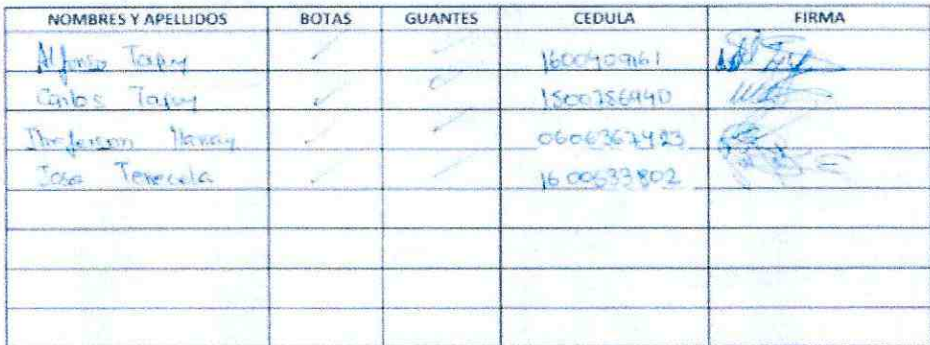 NOMBRES Y APELLIDOS BOTAS GUANTES CEDULA FIRMA
Alfonso Tapuy ✓ ✓ 1600409161
Carlos Tapuy ✓ ✓ 1500756440
Jheferson ✓ ✓ 0606367423
Jose ✓ ✓ 1600633802